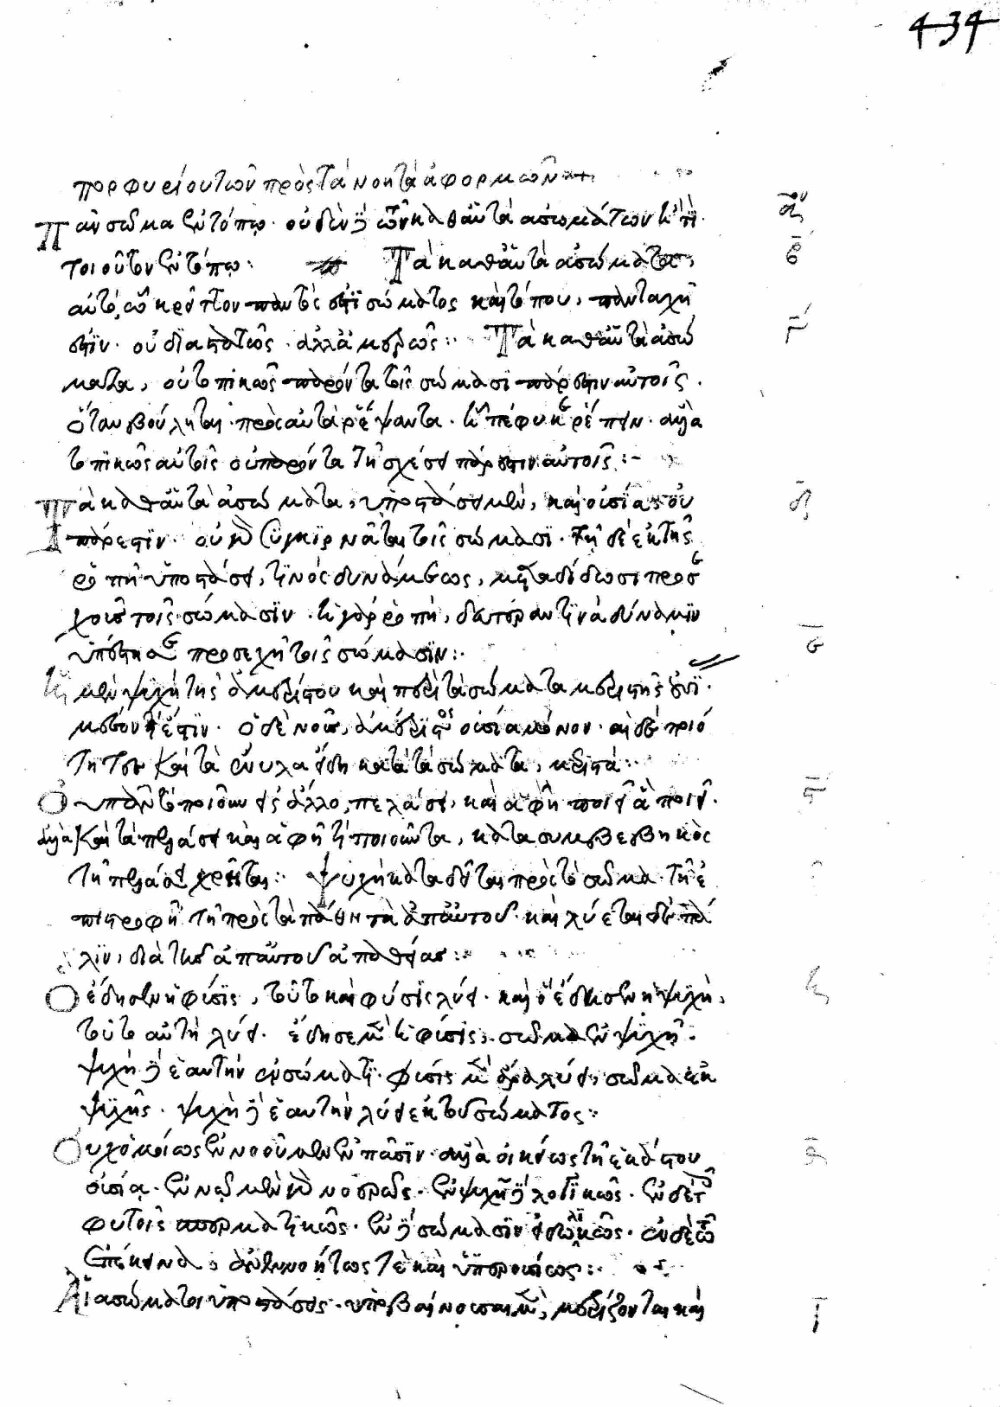 434
πορφυρίου τῶν πρὸς τὰ νοητὰ ἀφορμῶν
Πᾶν σῶμα ἐν τόπῳ· οὐδὲν δὲ τῶν καθ' αὑτὰ ἀσωμάτων ἢ
τοιοῦτον ἐν τόπῳ: Τὰ καθ' αὑτὰ ἀσώματα,
αὐτῷ ᾧ κρεῖττον παντός ἐστι σώματος καὶ τόπου, πανταχῆ
ἐστίν· οὐ διαστατῶς· ἀλλὰ ἀμερῶς: Τὰ καθ' αὑτὰ ἀσώ
ματα, οὐ τοπικῶς παρόντα τοῖς σώμασι πάρεστιν αὐτοῖς.
ὅταν βούληται· πρὸς αὐτὰ ῥέψαντα· ᾗ πέφυκε ῥέπειν· ἀλλὰ
τοπικῶς αὐτοῖς οὐ παρόντα τῇ σχέσει πάρεστιν αὐτοῖς:
Τὰ καθ' αὑτὰ ἀσώματα, ὑποστάσει μὲν, καὶ οὐσίᾳ οὐ
πάρεστιν· οὐ γὰρ συγκίρναται τοῖς σώμασι· τῇ δὲ ἐκ τῆς
ῥοπῆς ὑποστάσει, τινὸς δυνάμεως, μεταδίδωσι προσε
χοῦς τοῖς σώμασιν· ἡ γὰρ ῥοπὴ, δευτέραν τινὰ δύναμιν
ὑπέστησε προσεχῆ τοῖς σώμασιν:
Ἡ μὲν ψυχὴ τῆς ἀμερίστου καὶ περὶ τὰ σώματα μεριστῆς οὐσί
μέσόν τι ἐστίν· ὁ δὲ νοῦς, ἀμέριστος οὐσία μόνον· αἱ δὲ ποιό
τητες καὶ τὰ ἔνυλα εἴδη κατὰ τὰ σώματα, μεριστά:
Οὐ πᾶν τὸ ποιοῦν εἰς ἄλλο, πελάσει καὶ ἁφῇ ποιεῖ ἃ ποιεῖ.
ἀλλὰ καὶ τὰ πελάσει καὶ ἁφῇ τι ποιοῦντα, κατὰ συμβεβηκὸς
τῇ πελάσει χρῆται: Ψυχὴ καταδεῖται πρὸς τὸ σῶμα τῇ ἐ
πιστροφῇ τῇ πρὸς τὰ πάθη τὰ ἀπ' αὐτοῦ· καὶ λύεται δὲ πά
λιν, διὰ τῆς ἀπ' αὐτοῦ ἀπαθείας:
Ὃ ἔδησεν ἡ φύσις, τοῦτο καὶ φύσις λύει· καὶ ὃ ἔδησεν ἡ ψυχὴ,
τοῦτο αὐτὴ λύει· ἔδησε μὲν ἡ φύσις, σῶμα ἐν ψυχῇ.
ψυχὴ δὲ ἑαυτὴν ἐν σώματι· φύσις μὲν ἄρα λύει, σῶμα ἐκ
ψυχῆς· ψυχὴ δὲ ἑαυτὴν λύει ἐκ τοῦ σώματος:
Οὐχ ὁμοίως ἐννοοῦμεν ἐν πᾶσιν· ἀλλὰ οἰκείως τῇ ἑκάστου
οὐσίᾳ· ἐν νῷ μὲν γὰρ νοερῶς· ἐν ψυχῇ δὲ λογικῶς· ἐν δὲ τοῖς
φυτοῖς σπερματικῶς· ἐν δὲ σώμασιν εἰδωλικῶς· ἐν δὲ τῷ
ἐπέκεινα, ἀνεννοήτως τὲ καὶ ὑπερουσίως:
Αἱ ἀσώματοι ὑποστάσεις· ὑποβαίνουσαι μὲν, μερίζονται καὶ